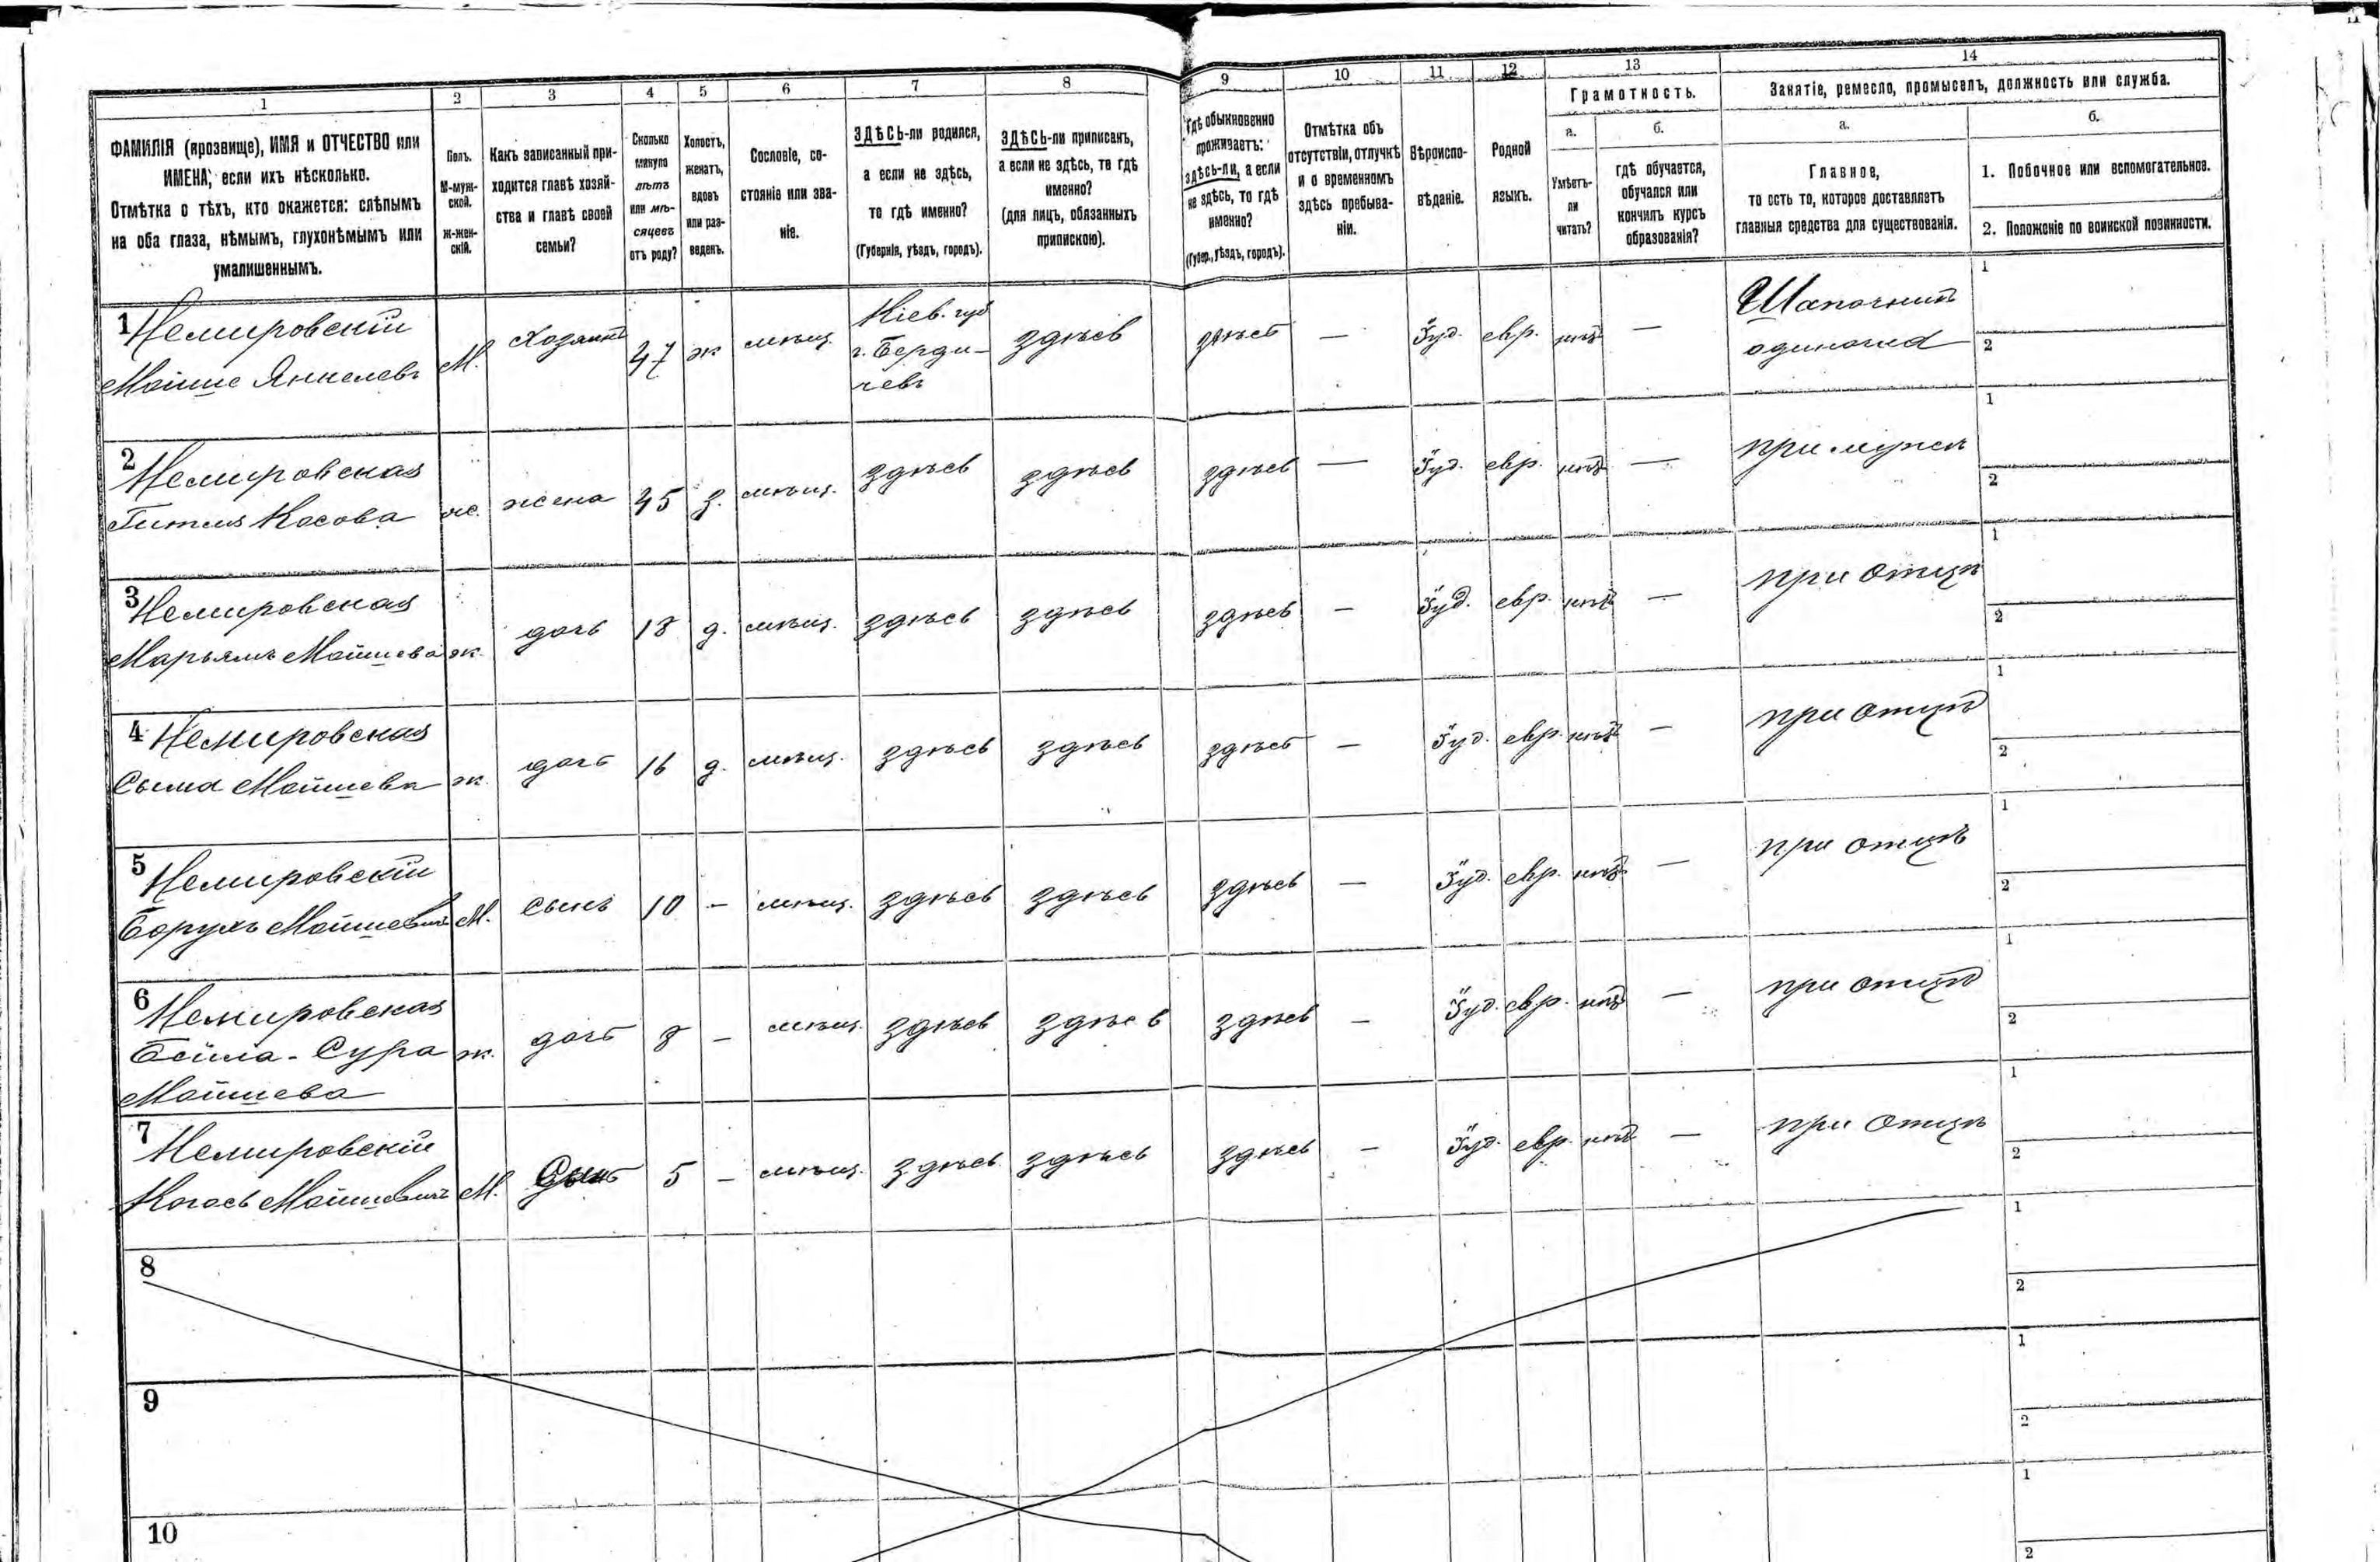 1
2
3
4
5
6
7
8
9
10
11
12
13
14
ФАМИЛІЯ (прозвище), ИМЯ и ОТЧЕСТВО или
ИМЕНА, если ихъ нѣсколько.
Отмѣтка о тѣхъ, кто окажется: слѣпымъ
на оба глаза, нѣмымъ, глухонѣмымъ или
умалишеннымъ.
Полъ.
М-муж-
ской.
ж-жен-
скій.
Какъ записанный при-
ходится главѣ хозяй-
ства и главѣ своей
семьи?
Сколько
минуло
лѣтъ
или мѣ-
сяцевъ
отъ роду?
Холостъ,
женатъ,
вдовъ
или раз-
веденъ.
Сословіе, со-
стояніе или зва-
ніе.
ЗДѢСЬ-ли родился,
а если не здѣсь,
то гдѣ именно?
(Губернія, уѣздъ, городъ).
ЗДѢСЬ-ли приписанъ,
а если не здѣсь, то гдѣ
именно?
(для лицъ, обязанныхъ
припискою).
Гдѣ обыкновенно
проживаетъ:
здѣсь-ли, а если
не здѣсь, то гдѣ
именно?
(Губер., уѣздъ, городъ).
Отмѣтка объ
отсутствіи, отлучкѣ
и о временномъ
здѣсь пребыва-
ніи.
Вѣроиспо-
вѣданіе.
Родной
языкъ.
Грамотность.
а.
Умѣетъ-
ли
читать?
б.
гдѣ обучается,
обучался или
кончилъ курсъ
образованія?
Занятіе, ремесло, промыселъ, должность или служба.
а.
Главное,
то есть то, которое доставляетъ
главныя средства для существованія.
б.
1. Побочное или вспомогательное.
2. Положеніе по воинской повинности.
1 Немировскій
Мойше Янкелевъ
М. хозяинъ 47 ж мѣщ.
Кіев. губ
г. Берди-
чевъ
здѣсь здѣсь — Іуд. евр. нѣтъ —
Шапочникъ
одиночка
1
2
2 Немировская
Гитля Косова
ж. жена 45 з. мѣщ. здѣсь здѣсь здѣсь — Іуд. евр. нѣтъ — при мужѣ
1
2
3 Немировская
Марьямъ Мойшева
ж. дочь 18 д. мѣщ. здѣсь здѣсь здѣсь — Іуд. евр. нѣтъ — при отцѣ
1
2
4 Немировская
Сыма Мойшева
ж. дочь 16 д. мѣщ. здѣсь здѣсь здѣсь — Іуд. евр. нѣтъ — при отцѣ
1
2
5 Немировскій
Борухъ Мойшевичъ
М. сынъ 10 — мѣщ. здѣсь здѣсь здѣсь — Іуд. евр. нѣтъ — при отцѣ
1
2
6 Немировская
Бейла-Сура
Мойшева
ж. дочь 8 — мѣщ. здѣсь здѣсь здѣсь — Іуд. евр. нѣтъ — при отцѣ
1
2
7 Немировскій
Мойшевичъ
М. сынъ 5 — мѣщ. здѣсь здѣсь здѣсь — Іуд. евр. нѣтъ — при отцѣ
1
2
8
1
2
9
1
2
10
1
2